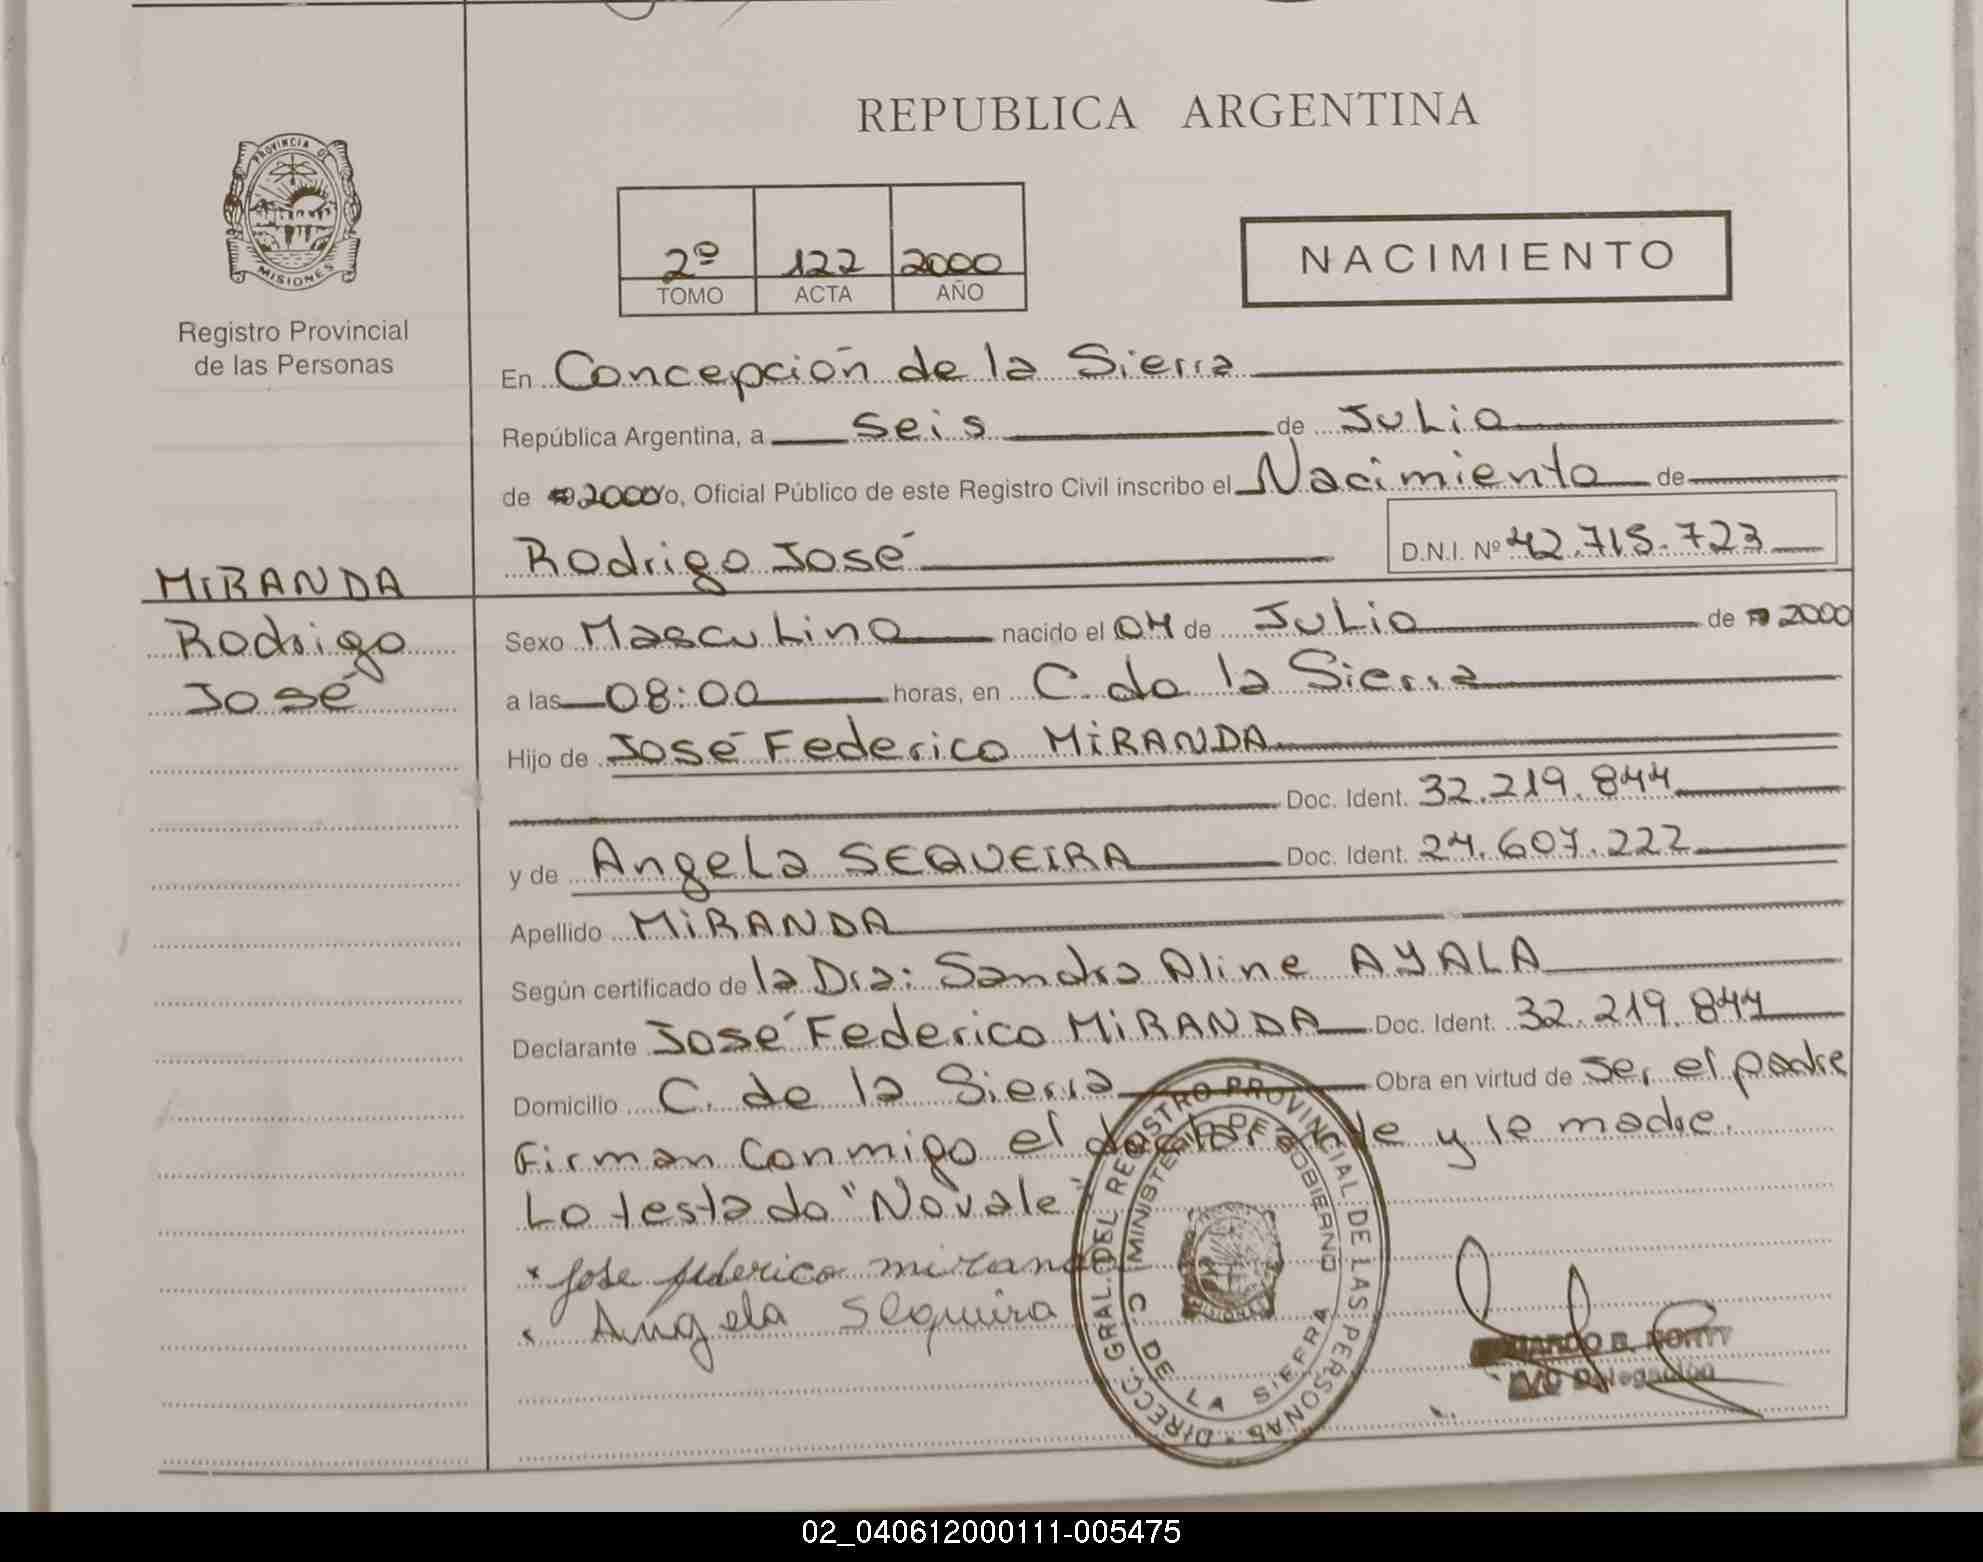 REPUBLICA ARGENTINA
PROVINCIA DE MISIONES
Registro Provincial
de las Personas
2º 122 2000
TOMO ACTA AÑO
NACIMIENTO
En Concepción de la Sierra
República Argentina, a Seis de Julio
de 2000 o, Oficial Público de este Registro Civil inscribo el Nacimiento de
Rodrigo José D.N.I. Nº 42.715.723
MIRANDA
Rodrigo
José
Sexo Masculino nacido el 04 de Julio de 2000
a las 08:00 horas, en C. de la Sierra
Hijo de José Federico MIRANDA
Doc. Ident. 32.219.844
y de Angela SEQUEIRA Doc. Ident. 24.607.222
Apellido MIRANDA
Según certificado de la Dra: Sandra Aline AYALA
Declarante José Federico MIRANDA Doc. Ident. 32.219.844
Domicilio C. de la Sierra Obra en virtud de ser el padre
Firman conmigo el declarante y la madre.
Lo testado "No vale"
Jose federico miranda
Angela Sequeira
DIRECC. GRAL. DEL REGISTRO PROVINCIAL DE LAS PERSONAS
MINISTERIO DE GOBIERNO
C. DE LA SIERRA
Delegación
02_040612000111-005475